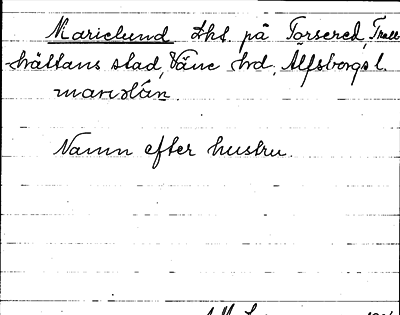 Marielund Lht. på Torsered, Troll-
hättans stad, Väne hd, Älfsborgs l.
Namn efter hustru.